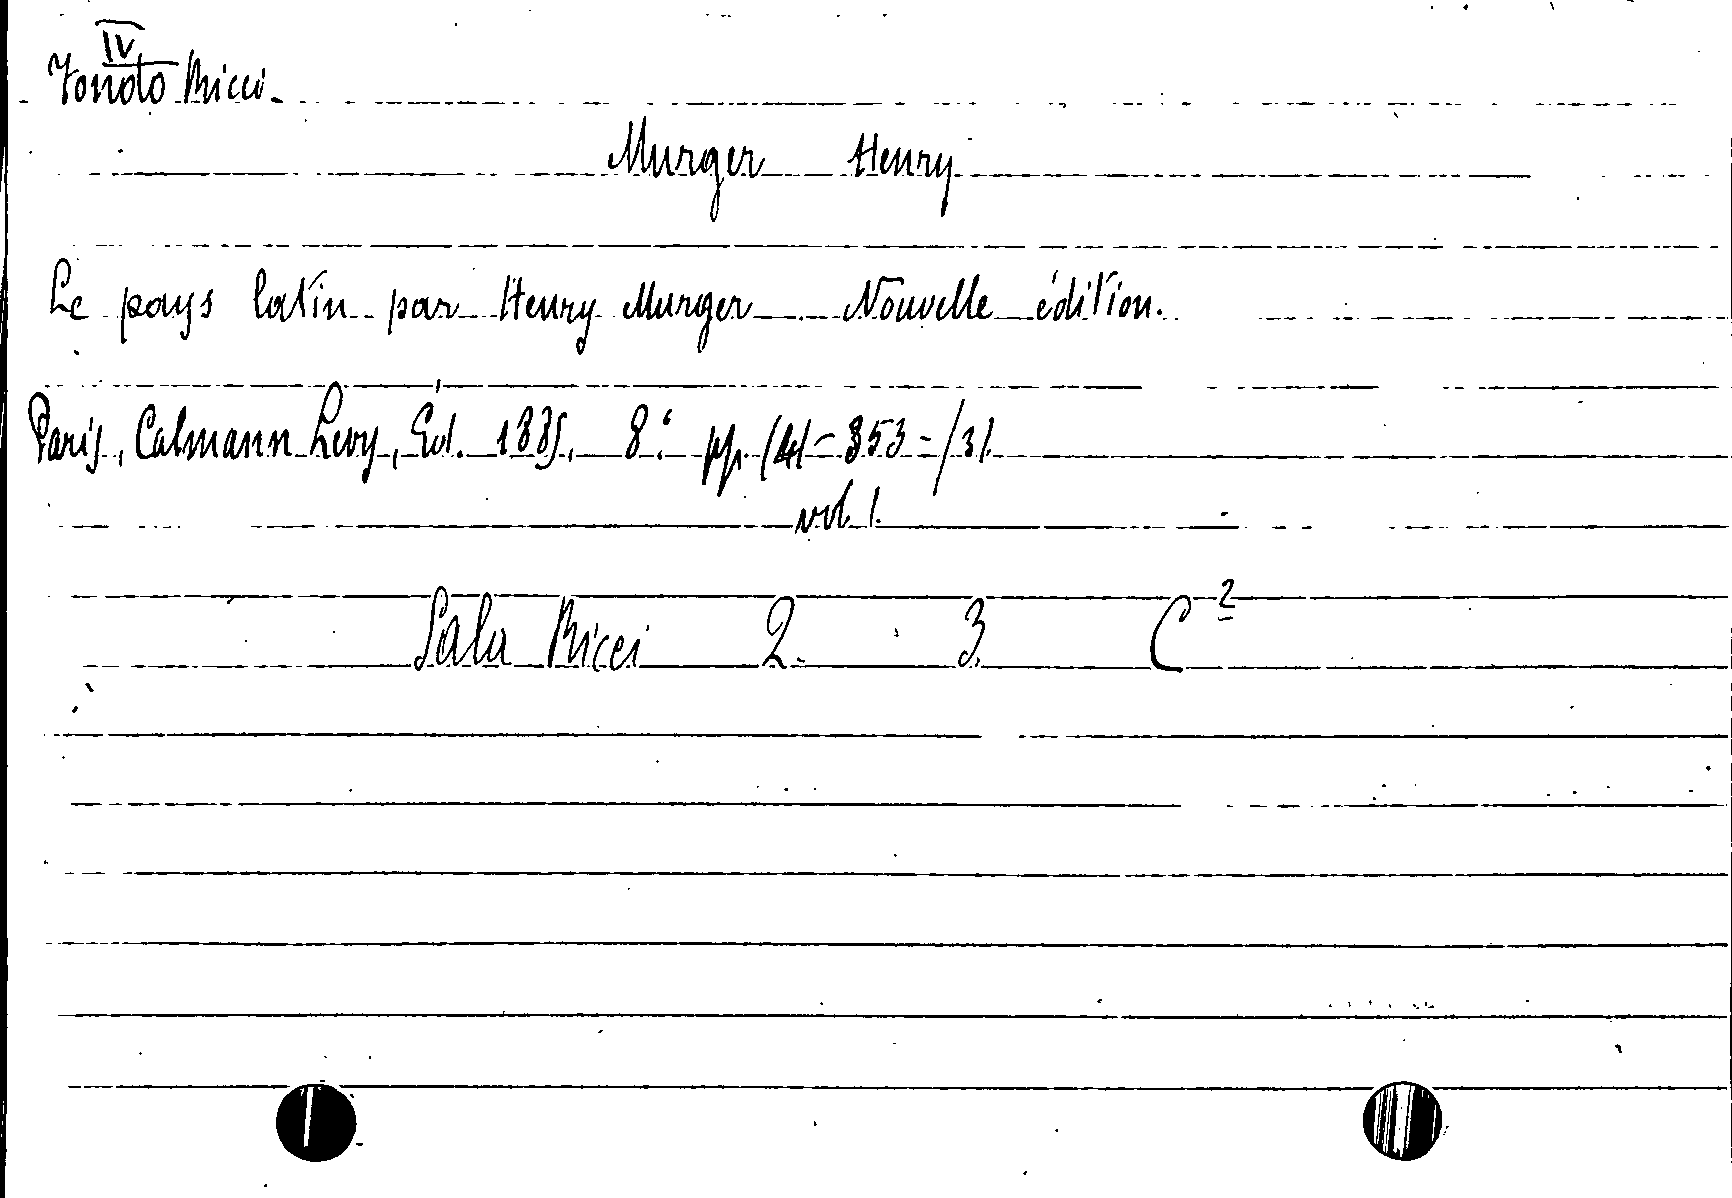 IV
Fondo Ricci.
Murger Henry
Le pays latin par Henry Murger Nouvelle édition.
Paris, Calmann Levy, Éd. 1885. 8° pp. (4)-353-/3/.
vol. 1.
Sala Ricci 2. 3. C²